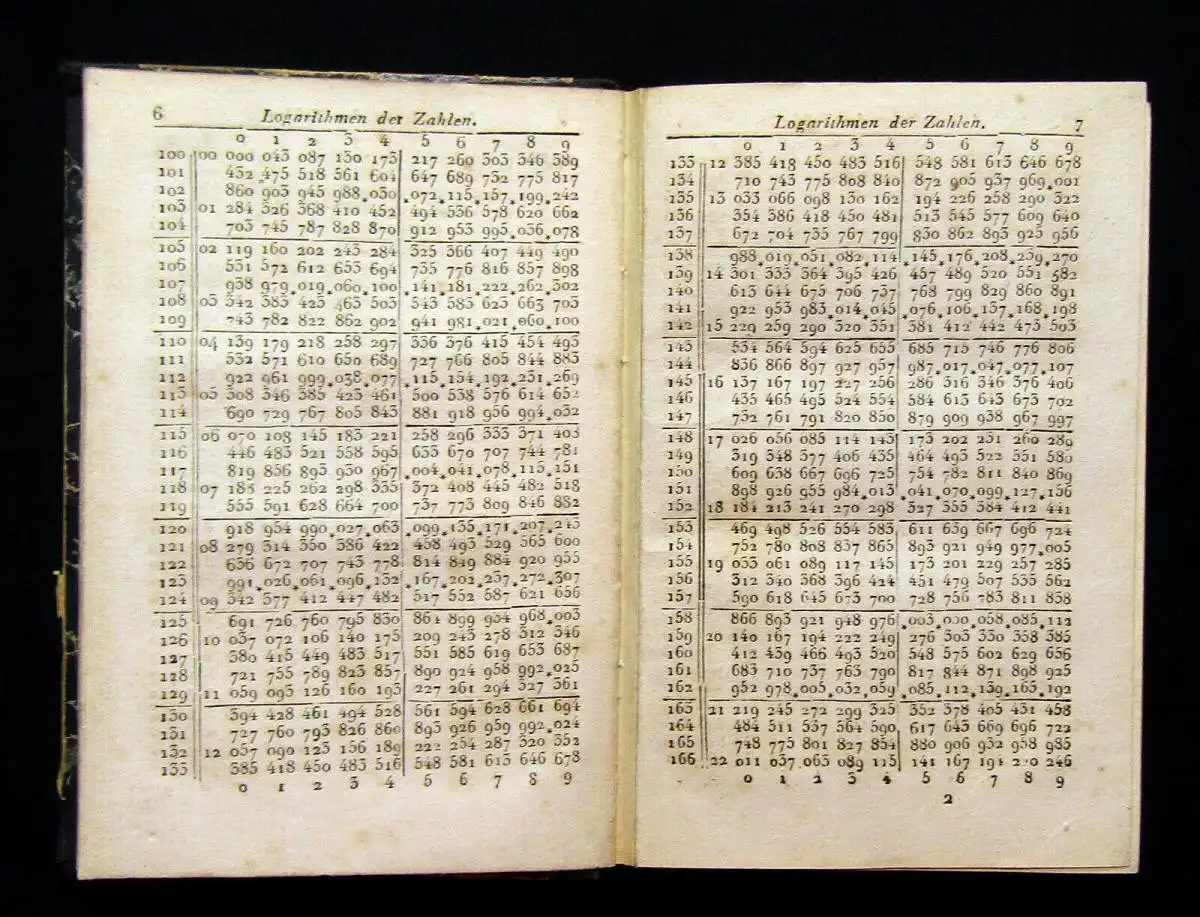 6 Logarithmen der Zahlen.
0 1 2 3 4 5 6 7 8 9
100 00 000 043 087 130 173 217 260 303 346 389
101 432 475 518 561 604 647 689 732 775 817
102 860 903 945 988*030 *072*115*157*199*242
103 01 284 326 368 410 452 494 536 578 620 662
104 703 745 787 828 870 912 953 995*036*078
105 02 119 160 202 243 284 325 366 407 449 490
106 531 572 612 653 694 735 776 816 857 898
107 938 979*019*060*100 *141*181*222*262*302
108 03 342 383 423 463 503 543 583 623 663 703
109 743 782 822 862 902 941 981*021*060*100
110 04 139 179 218 258 297 336 376 415 454 493
111 532 571 610 650 689 727 766 805 844 883
112 922 961 999*038*077 *115*154*192*231*269
113 05 308 346 385 423 461 500 538 576 614 652
114 690 729 767 805 843 881 918 956 994*032
115 06 070 108 145 183 221 258 296 333 371 408
116 446 483 521 558 595 633 670 707 744 781
117 819 856 893 930 967 *004*041*078*115*151
118 07 188 225 262 298 335 372 408 445 482 518
119 555 591 628 664 700 737 773 809 846 882
120 918 954 990*027*063 *099*135*171*207*243
121 08 279 314 350 386 422 458 493 529 565 600
122 636 672 707 743 778 814 849 884 920 955
123 991*026*061*096*132 *167*202*237*272*307
124 09 342 377 412 447 482 517 552 587 621 656
125 691 726 760 795 830 864 899 934 968*003
126 10 037 072 106 140 175 209 243 278 312 346
127 380 415 449 483 517 551 585 619 653 687
128 721 755 789 823 857 890 924 958 992*025
129 11 059 093 126 160 193 227 261 294 327 361
130 394 428 461 494 528 561 594 628 661 694
131 727 760 793 826 860 893 926 959 992*024
132 12 057 090 123 156 189 222 254 287 320 352
133 385 418 450 483 516 548 581 613 646 678
0 1 2 3 4 5 6 7 8 9
Logarithmen der Zahlen. 7
0 1 2 3 4 5 6 7 8 9
133 12 385 418 450 483 516 548 581 613 646 678
134 710 743 775 808 840 872 905 937 969*001
135 13 033 066 098 130 162 194 226 258 290 322
136 354 386 418 450 481 513 545 577 609 640
137 672 704 735 767 799 830 862 893 925 956
138 988*019*051*082*114 *145*176*208*239*270
139 14 301 333 364 395 426 457 489 520 551 582
140 613 644 675 706 737 768 799 829 860 891
141 922 953 983*014*045 *076*106*137*168*198
142 15 229 259 290 320 351 381 412 442 473 503
143 534 564 594 625 655 685 715 746 776 806
144 836 866 897 927 957 987*017*047*077*107
145 16 137 167 197 227 256 286 316 346 376 406
146 435 465 495 524 554 584 613 643 673 702
147 732 761 791 820 850 879 909 938 967 997
148 17 026 056 085 114 143 173 202 231 260 289
149 319 348 377 406 435 464 493 522 551 580
150 609 638 667 696 725 754 782 811 840 869
151 898 926 955 984*013 *041*070*099*127*156
152 18 184 213 241 270 298 327 355 384 412 441
153 469 498 526 554 583 611 639 667 696 724
154 752 780 808 837 865 893 921 949 977*005
155 19 033 061 089 117 145 173 201 229 257 285
156 312 340 368 396 424 451 479 507 535 562
157 590 618 645 673 700 728 756 783 811 838
158 866 893 921 948 976 *003*030*058*085*112
159 20 140 167 194 222 249 276 303 330 358 385
160 412 439 466 493 520 548 575 602 629 656
161 683 710 737 763 790 817 844 871 898 925
162 952 978*005*032*059 *085*112*139*165*192
163 21 219 245 272 299 325 352 378 405 431 458
164 484 511 537 564 590 617 643 669 696 722
165 748 775 801 827 854 880 906 932 958 985
166 22 011 037 063 089 115 141 167 194 220 246
0 1 2 3 4 5 6 7 8 9
2